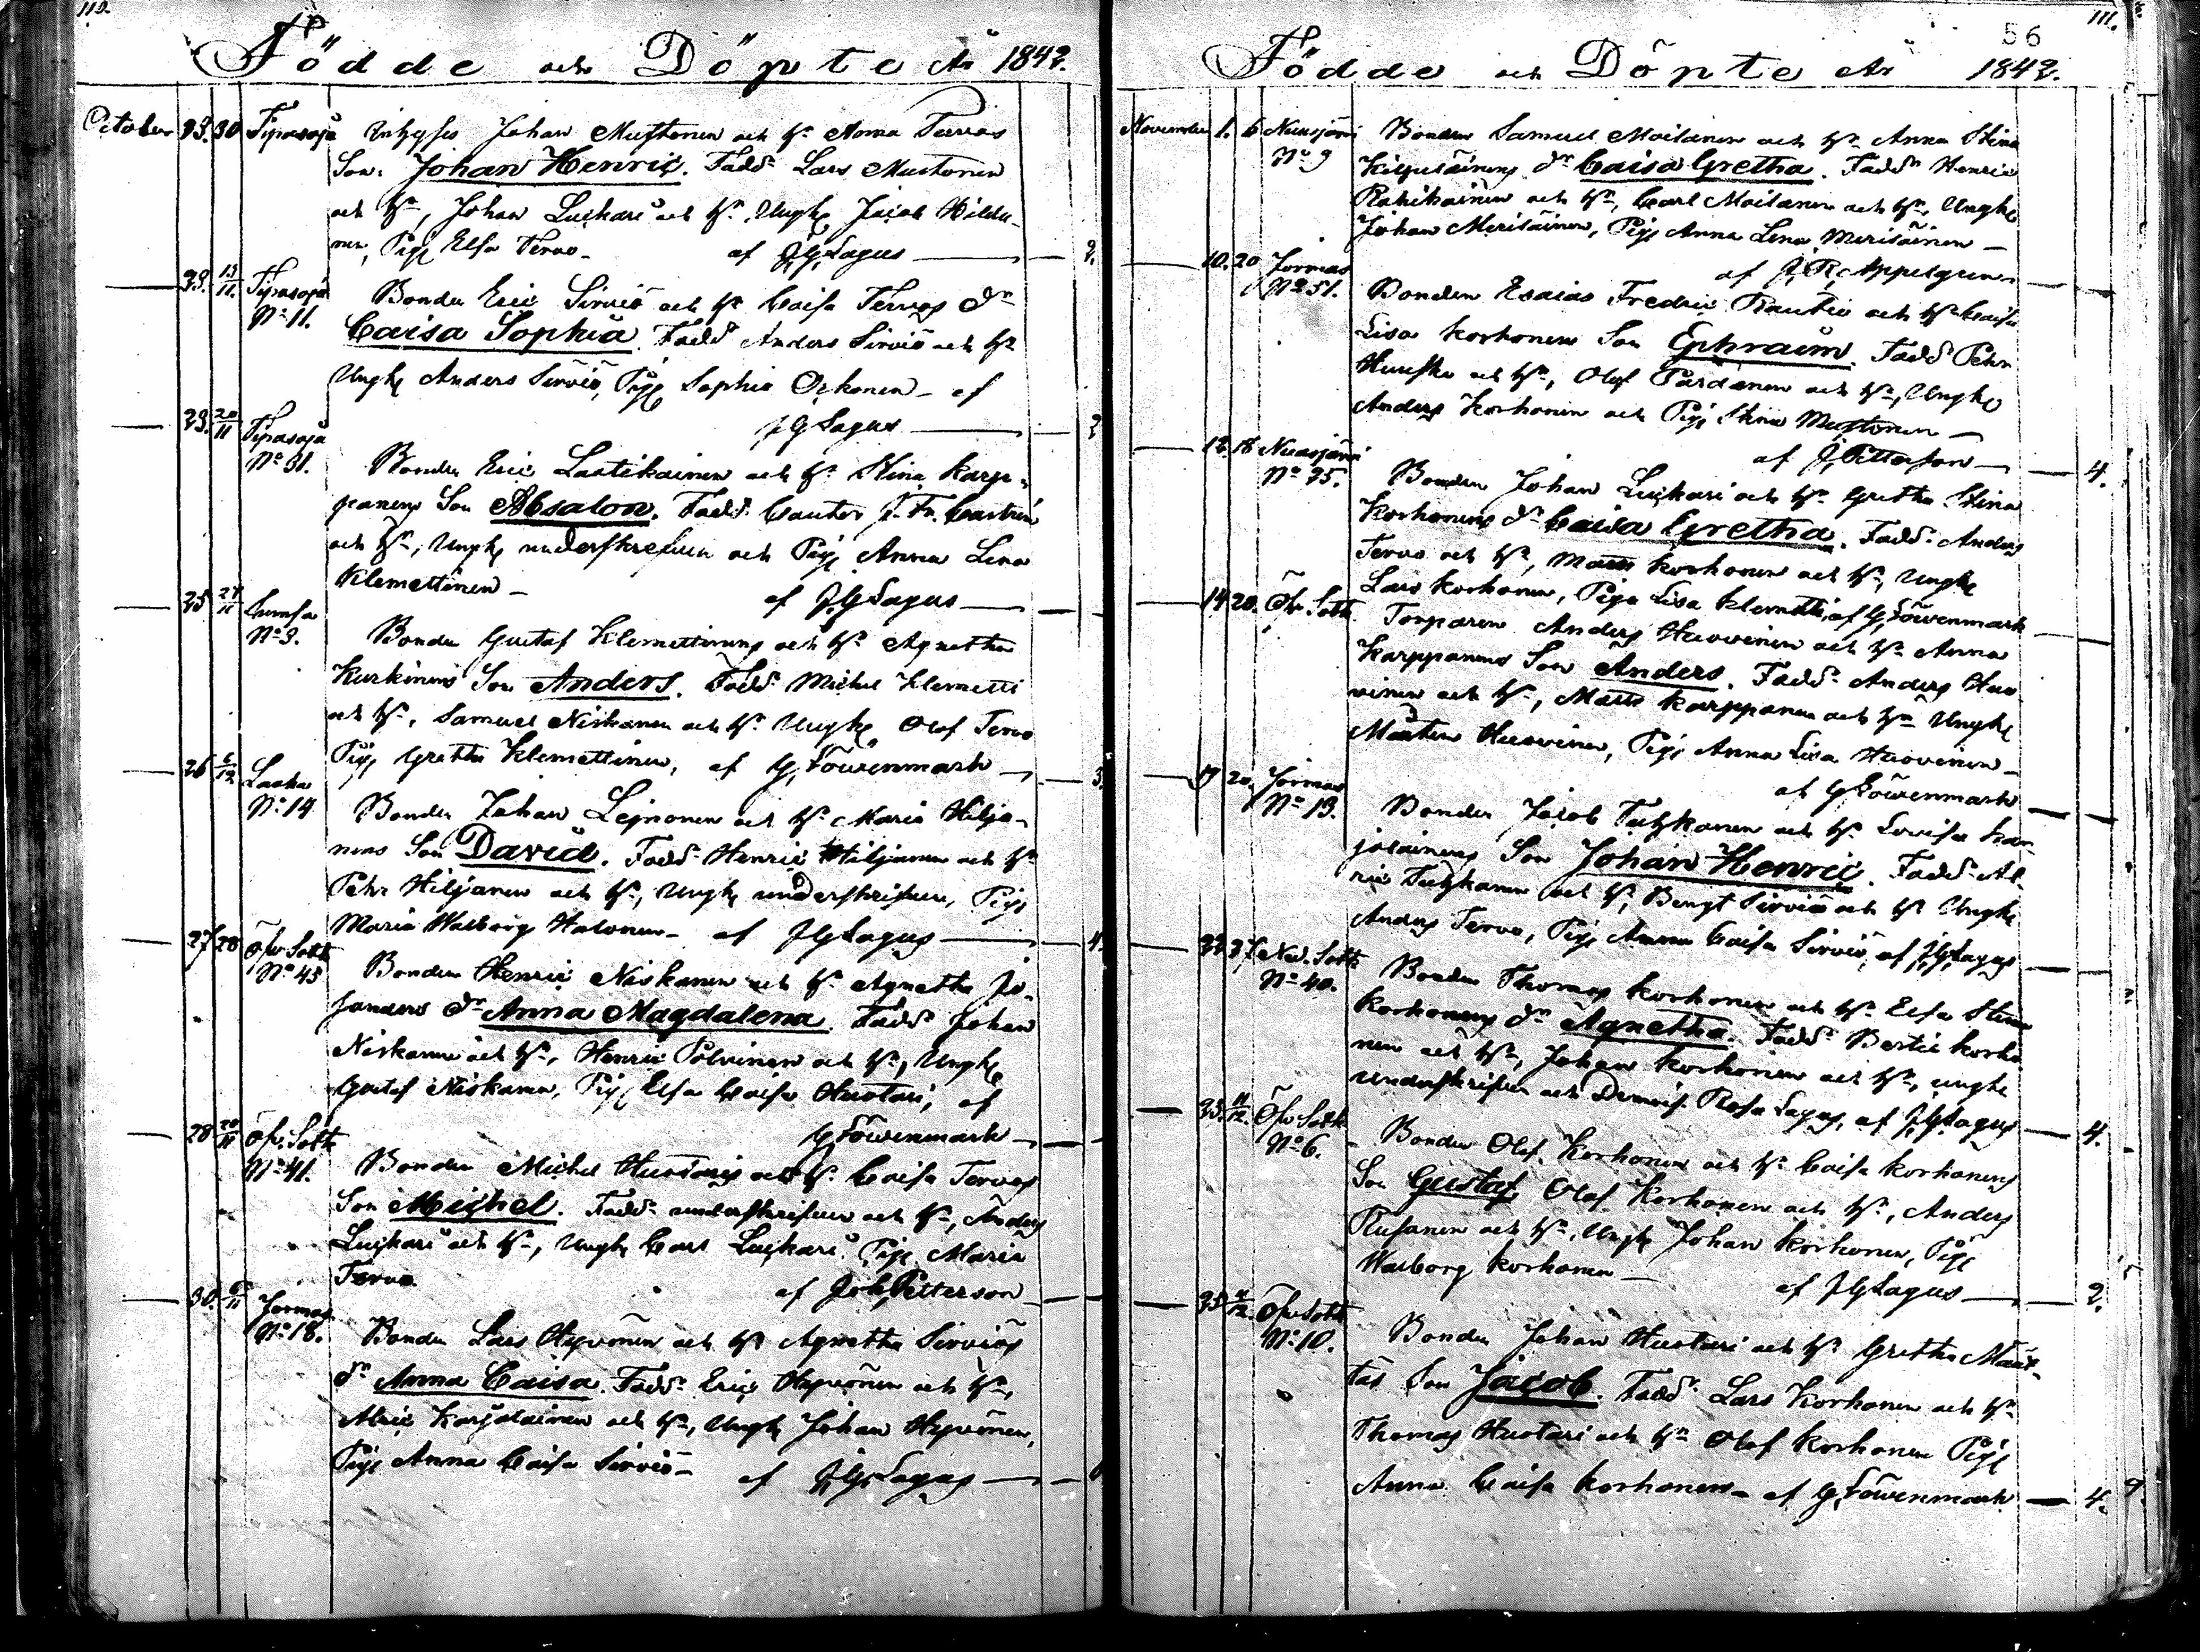 110.
Födde och Döpte År 1842.
October 23. 30 Tipasoja Inhyses Johan Mustonen och h. Anna Tervos
Son Johan Henric. Fadd. Lars Mustonen
och h., Johan Luckari och h., Ungk Jacob Hildu-
nen, Pig. Elsa Tervo – af J.G. Lagus
23. 13/11. Tipasoja Bonden Eric Sirviö och h. Caisa Tervos dr
No 11. Caisa Sophia. Fadd. Anders Sirviö och h.
Ungk Anders Sirviö, Pig. Sophia Ockonen – af
J G Lagus
23. 20/11 Tipasoja Bonden Eric Laatikainen och h. Stina Karp-
No 31. panens Son Absalon. Fadd. Cantor J. Fr. Castrén
och h., Ungk underskrefven och Pig. Anna Lena
Klemettinen – af J.G. Lagus
25 27/11 Sumsa Bonden Gustaf Klemettinens och h. Agnetha
No 3. Kurkinens Son Anders. Fadd. Michel Klemetti
och h., Samuel Niskanen och h. Ungk Olof Tervo
Pig. Gretha Klemettinen, af G. Löwenmark 3.
26 6/12 Laaka Bonden Johan Leinonen och h. Maria Hilja-
No 14 nens Son David. Fadd. Henric Hiljanen och h.
Petr Hiljanen och h., Ungk underskrifven, Pig.
Maria Walborg Halonen – af J G Lagus 4.
27 28 Öfv. Sotk. Bonden Henric Niskanen och h. Agnetha Jo-
No 45 sanders dr Anna Magdalena Fadd. Johan
Niskanen och h., Henric Polvinen och h., Ungk
Gustaf Niskanen, Pig. Elsa Caisa Huotari, af
G Löwenmark
28 20/11 Öfv. Sotk. Bonden Michel Huotaris och h. Caisa Tervos
No 41. Son Michel. Fadd. underskrefven och h., Anders
Luckari och h., Ungk Carl Luckari Pig. Maria
Tervo. af Joh. Petterson
30. 6/11 Jormas Bonden Lars Hyvönen och h. Agnetha Sirviös
No 18. dr Anna Caisa. Fadd. Eric Hyvönen och h.,
Alric Karjalainen och h., Ungk Johan Hyvönen,
Pig. Anna Caisa Sirviö – af J.G. Lagus
111.
56
Födde och Döpte År 1842.
November 1. 6 Nuasjärvi Bonden Samuel Moilanen och h. Anna Stina
No 9 Kilpeläinens dr Caisa Gretha. Fadd. Henric
Rahikainen och h., Carl Moilanen och h., Ungk
Johan Meriläinen, Pig. Anna Lena Meriläinen –
af J. R. Appelgren
10. 20 Jormas Bonden Esaias Fredric Rautio och h. Caisa
No 51. Lisa Korhonens Son Ephraim. Fadd. Pehr
Hursko och h., Olof Pardanen och h., Ungk
Anders Korhonen och Pig. Stina Mustonen –
af J. Petterson 4.
12. 18 Nuasjärvi Bonden Johan Luckari och h. Gretha Stina
No 25. Korhonens dr Caisa Gretha. Fadd. Anders
Tervo och h., Matts Korhonen och h., Ungk
Lars Korhonen, Piga Lisa Klemetti, af G. Löwenmark
14 20. Öfv. Sotk. Torparen Anders Huovinen och h. Anna
Karppanens Son Anders. Fadd. Anders Huo
vinen och h., Matts Karppanen och h. Ungk
Mårten Huovinen, Pig. Anna Lisa Huovinen –
af G Löwenmark
19 20. Jormas Bonden Jacob Tutzkanen och h. Lovisa Kar-
No 13. jalainens Son Johan Henric. Fadd. Al-
ric Tutzkanen och h., Bengt Sirviö och h. Ungk
Anders Tervo, Pig. Anna Caisa Sirviö, af J.G. Lagus
22 27 Ned. Sotk. Bonden Thomas Korhonen och h. Elsa Stina
No 40. Korhonens dr Agnetha. Fadd. Bertil Korho
nen och h., Johan Korhonen och h., Ungk
underskrifven och Demois. Rosa Lagus, af J.G. Lagus 4.
23. 11/12. Öfv Sotk Bonden Olof Korhonen och h. Caisa Korhonens
No 6. Son Gustaf, Olof Korhonen och h., Anders
Rusanen och h., Ungk Johan Korhonen, Pig.
Walborg Korhonen – af J G Lagus 2.
25 4/12. Öfv Sotk Bonden Johan Huotari och h. Gretha Mää-
No 10. täs Son Jacob. Fadd. Lars Korhonen och h.
Thomas Huotari och h. Olof Korhonen Pig.
Anna Caisa Korhonen – af G. Löwenmark 4.